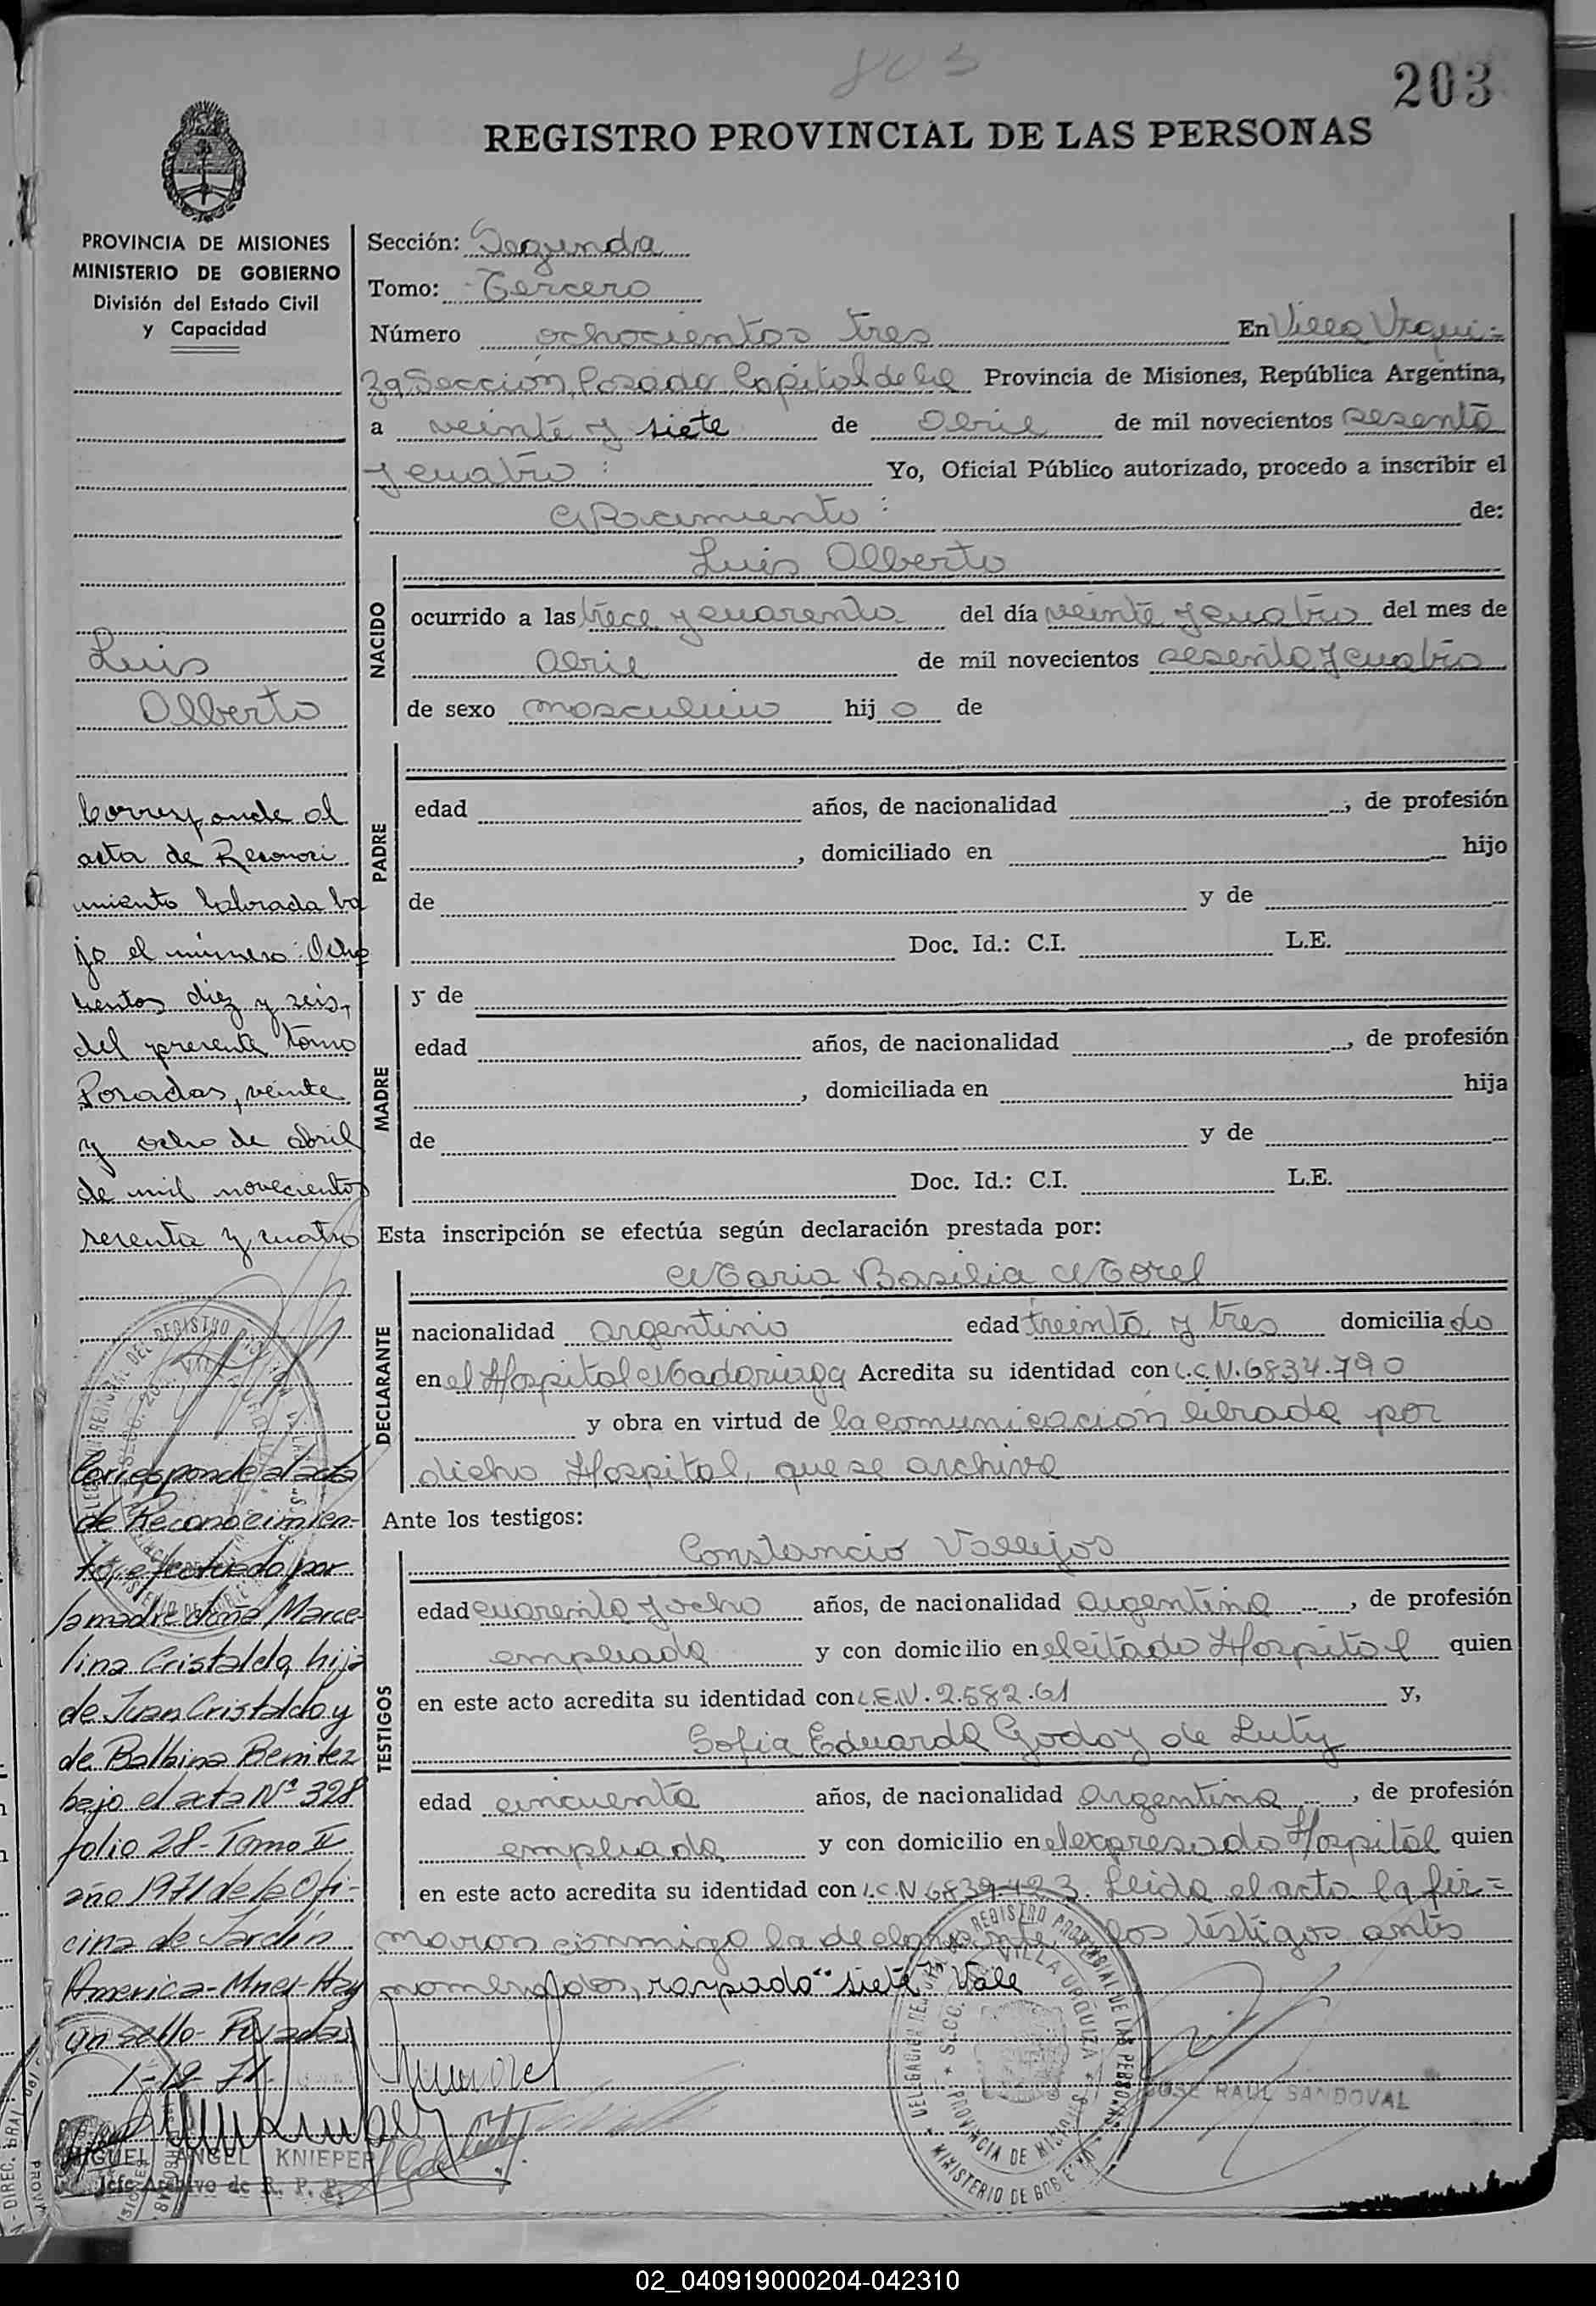 803
203
REGISTRO PROVINCIAL DE LAS PERSONAS
PROVINCIA DE MISIONES
MINISTERIO DE GOBIERNO
División del Estado Civil
y Capacidad
Luis
Alberto
Corresponde al
acta de Reconoci
miento labrada ba
jo el número: Ocho
cientos diez y seis,
del presente tomo
Posadas, veinte
y ocho de abril
de mil novecientos
sesenta y cuatro
Corresponde al acta
de Reconocimien-
to, efectuado por
la madre doña Marce-
lina Cristaldo, hija
de Juan Cristaldo y
de Balbina Benitez
bajo el acta Nº 328
folio 28 - Tomo II
año 1971 de la Ofi-
cina de Jardín
America - Mnes - Hay
un sello - Posadas
1-12-71
MIGUEL ANGEL KNIEPER
Jefe Archivo de R. P. P.
Sección: Segunda
Tomo: Tercero
Número ochocientos tres En Villa Urqui=
za Sección, Posadas Capital de la Provincia de Misiones, República Argentina,
a veinte y siete de Abril de mil novecientos sesenta
y cuatro : Yo, Oficial Público autorizado, procedo a inscribir el
Nacimiento : de:
NACIDO
Luis Alberto
ocurrido a las trece y cuarenta del día veinte y cuatro del mes de
Abril de mil novecientos sesenta y cuatro
de sexo masculino hijo de
PADRE
edad años, de nacionalidad , de profesión
, domiciliado en hijo
de y de
Doc. Id.: C.I. L.E.
MADRE
y de
edad años, de nacionalidad , de profesión
, domiciliada en hija
de y de
Doc. Id.: C.I. L.E.
Esta inscripción se efectúa según declaración prestada por:
DECLARANTE
Maria Basilia Morel
nacionalidad argentina edad treinta y tres domiciliada
en el Hospital Madariaga Acredita su identidad con L.C.N. 6834.790
y obra en virtud de la comunicación librada por
dicho Hospital, que se archiva
Ante los testigos:
TESTIGOS
Constancio Vallejos
edad cuarenta y ocho años, de nacionalidad argentina , de profesión
empleado y con domicilio en el citado Hospital quien
en este acto acredita su identidad con L.E.N. 2.582.61 y,
Sofia Eduarda Godoy de Luty
edad cincuenta años, de nacionalidad argentina , de profesión
empleada y con domicilio en el expresado Hospital quien
en este acto acredita su identidad con L.C.N. 6839.423. Leida el acta la fir=
maron conmigo la declarante y los testigos antes
nombrados, raspado "siete" Vale
DELEGACION REGIONAL DEL REGISTRO PROVINCIAL DE LAS PERSONAS
VILLA URQUIZA
PROVINCIA DE MISIONES
MINISTERIO DE GOBIERNO
JOSE RAUL SANDOVAL
02_040919000204-042310